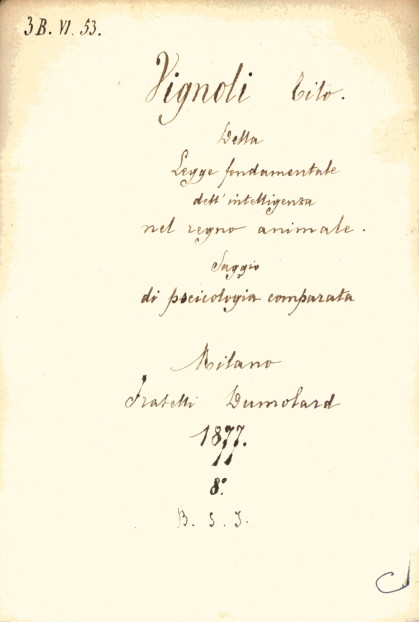 3 B. VI. 53.
Vignoli Tito.
Della
Legge fondamentale
dell' intelligenza
nel regno animale.
Saggio
di pscicologia comparata
Milano
Fratelli Dumolard
1877.
8º
B. S. I.